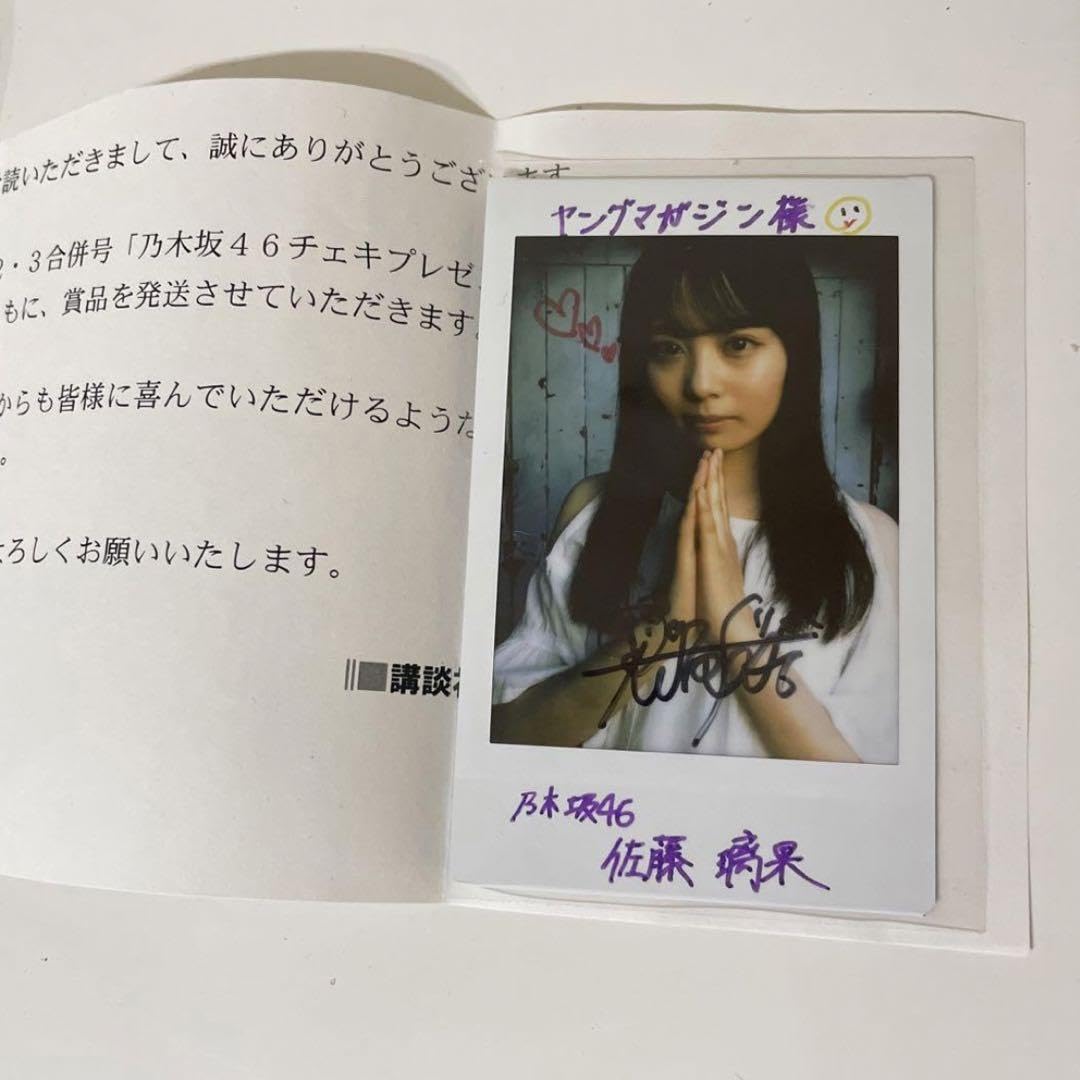 読いただきまして、誠にありがとうござ ます
2・3合併号「乃木坂46チェキプレゼ
もに、賞品を発送させていただきます。
からも皆様に喜んでいただけるような
。
ろしくお願いいたします。
講談社
ヤングマガジン様
乃木坂46
佐藤 璃果